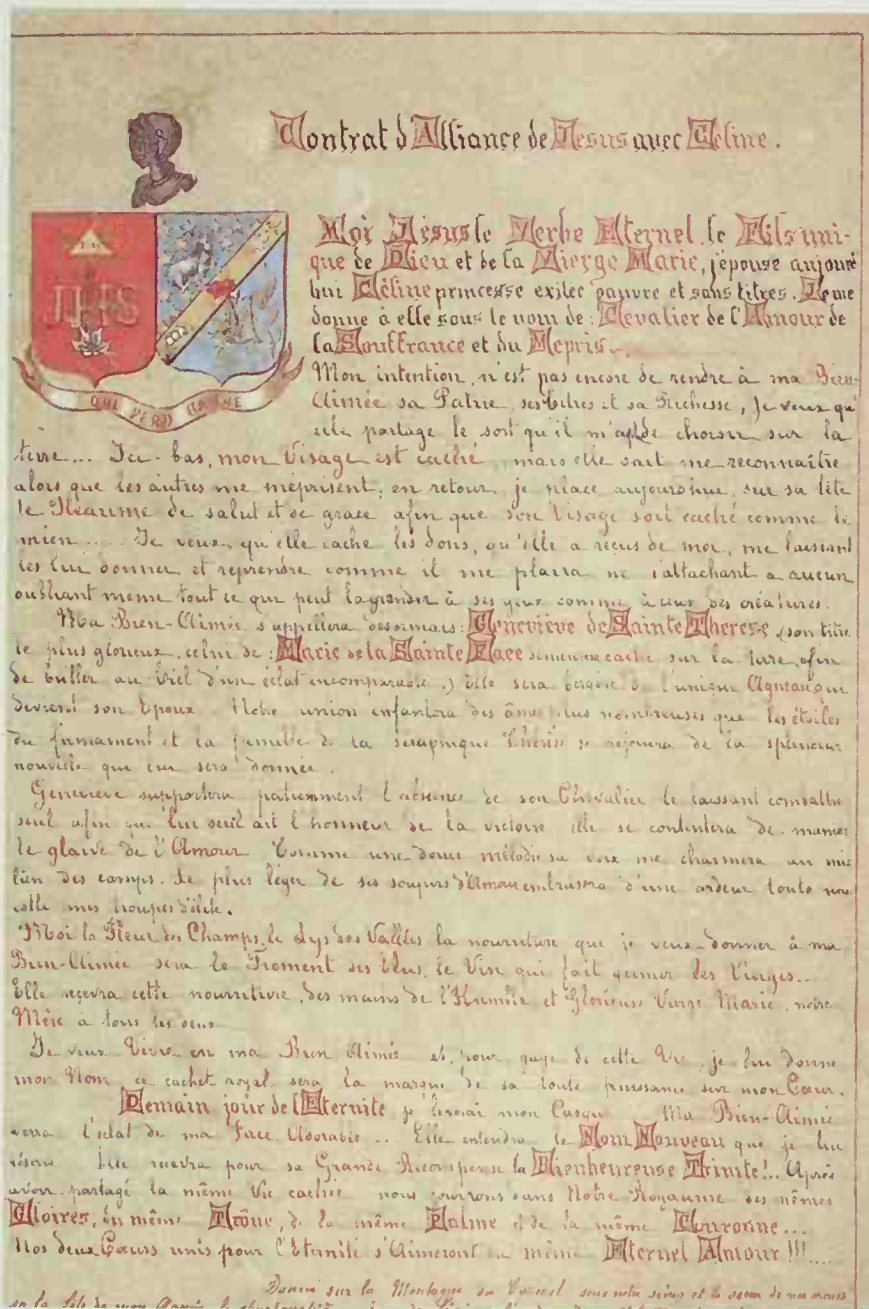 Contrat d'Alliance de Jésus avec Céline.
IHS
QUI PERD GAGNE
Moi Jésus le Verbe Eternel, le Fils uni-
que de Dieu et de la Vierge Marie, j'épouse aujourd'
hui Céline princesse exilée pauvre et sans titres. Je me
donne à elle sous le nom de: Chevalier de l'Amour de
la Souffrance et du Mépris.
Mon intention, n'est pas encore de rendre à ma Bien-
Aimée sa Patrie, ses titres et sa Richesse, je veux qu'
elle partage le sort qu'il m'a plu de choisir sur la
terre... Ici-bas, mon Visage est caché, mais elle sait me reconnaître
alors que les autres me méprisent; en retour, je place aujourd'hui, sur sa tête
le Heaume de salut et de grâce afin que son Visage soit caché comme le
mien.... Je veux qu'elle cache les dons, qu'elle a reçus de moi, me laissant
les lui donner et reprendre comme il me plaira ne s'attachant à aucun
oubliant même tout ce qui peut la grandir à ses yeux comme à ceux des créatures.
Ma Bien-Aimée s'appellera désormais: Geneviève de Sainte Thérèse (son titre
le plus glorieux, celui de: Marie de la Sainte Face caché sur la terre, afin
de briller au Ciel d'un éclat incomparable.) Elle sera bergère de l'unique Agneau qui
devient son Epoux. Notre union enfantera des âmes plus nombreuses que les étoiles
du firmament et la famille de la séraphique Thérèse se réjouira de la splendeur
nouvelle qui lui sera donnée.
Geneviève supportera patiemment l'absence de son Chevalier le laissant combattre
seul afin que lui seul ait l'honneur de la victoire elle se contentera de manier
le glaive de l'Amour. Comme une douce mélodie sa voix me charmera au mi-
lieu des camps. Le plus léger de ses soupirs d'Amour embrasera d'une ardeur toute nou-
velle mes troupes d'élite.
Moi la Fleur des Champs, le Lys des Vallées la nourriture que je veux donner à ma
Bien-Aimée sera le Froment des Elus, le Vin qui fait germer les Vierges...
Elle recevra cette nourriture, des mains de l'Humble et Glorieuse Vierge Marie, notre
Mère à tous les deux
Je veux Vivre en ma Bien Aimée et, pour gage de cette Vie, je lui donne
mon Nom ce cachet royal sera la marque de sa toute puissance sur mon Cœur.
Demain jour de l'Eternité je lèverai mon Casque Ma Bien-Aimée
verra l'éclat de ma Face Adorable... Elle entendra le Nom Nouveau que je lui
réserve Elle recevra pour sa Grande Récompense la Bienheureuse Trinité!.. Après
avoir partagé la même Vie cachée nous jouirons dans Notre Royaume des mêmes
Gloires, du même Trône, de la même Palme et de la même Couronne...
Nos deux Cœurs unis pour l'Eternité s'Aimeront du même Eternel Amour!!!....
Donné sur la Montagne du Carmel sous notre seing et le sceau de nos armes